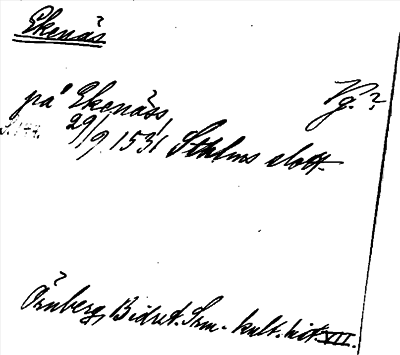 Ekenäs
på Ekenäss Vg.?
S. 177. 29/9 1531 Sthlms slott.
Örnberg, Bidr t. Svn. kult. hist VII.